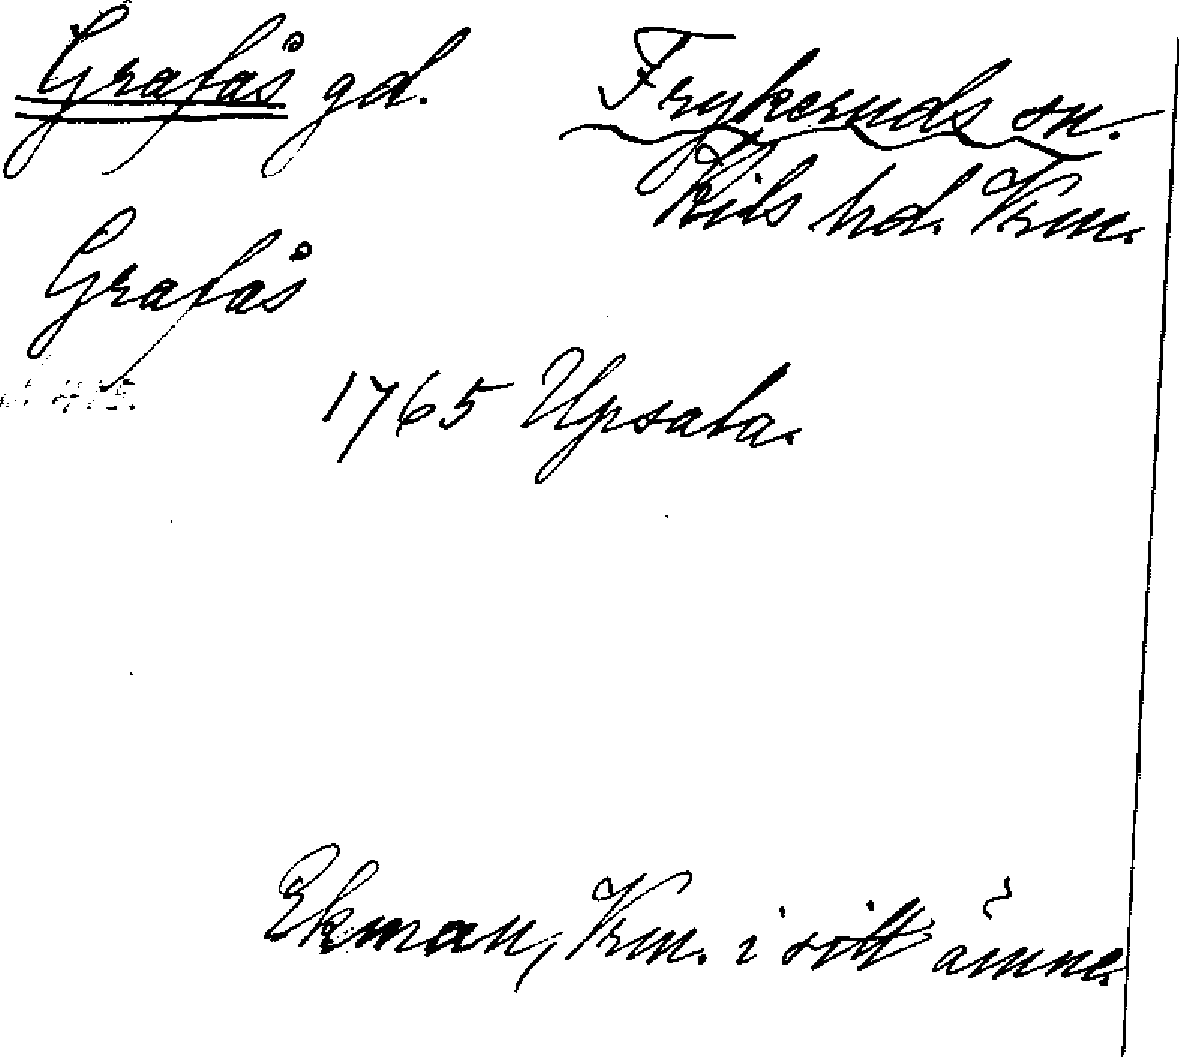 Grafås gd. Frykeruds sn.
Kils hd. Vrm.
Grafås
1765 Upsala.
Ekman, Vrm. i sitt ämne.